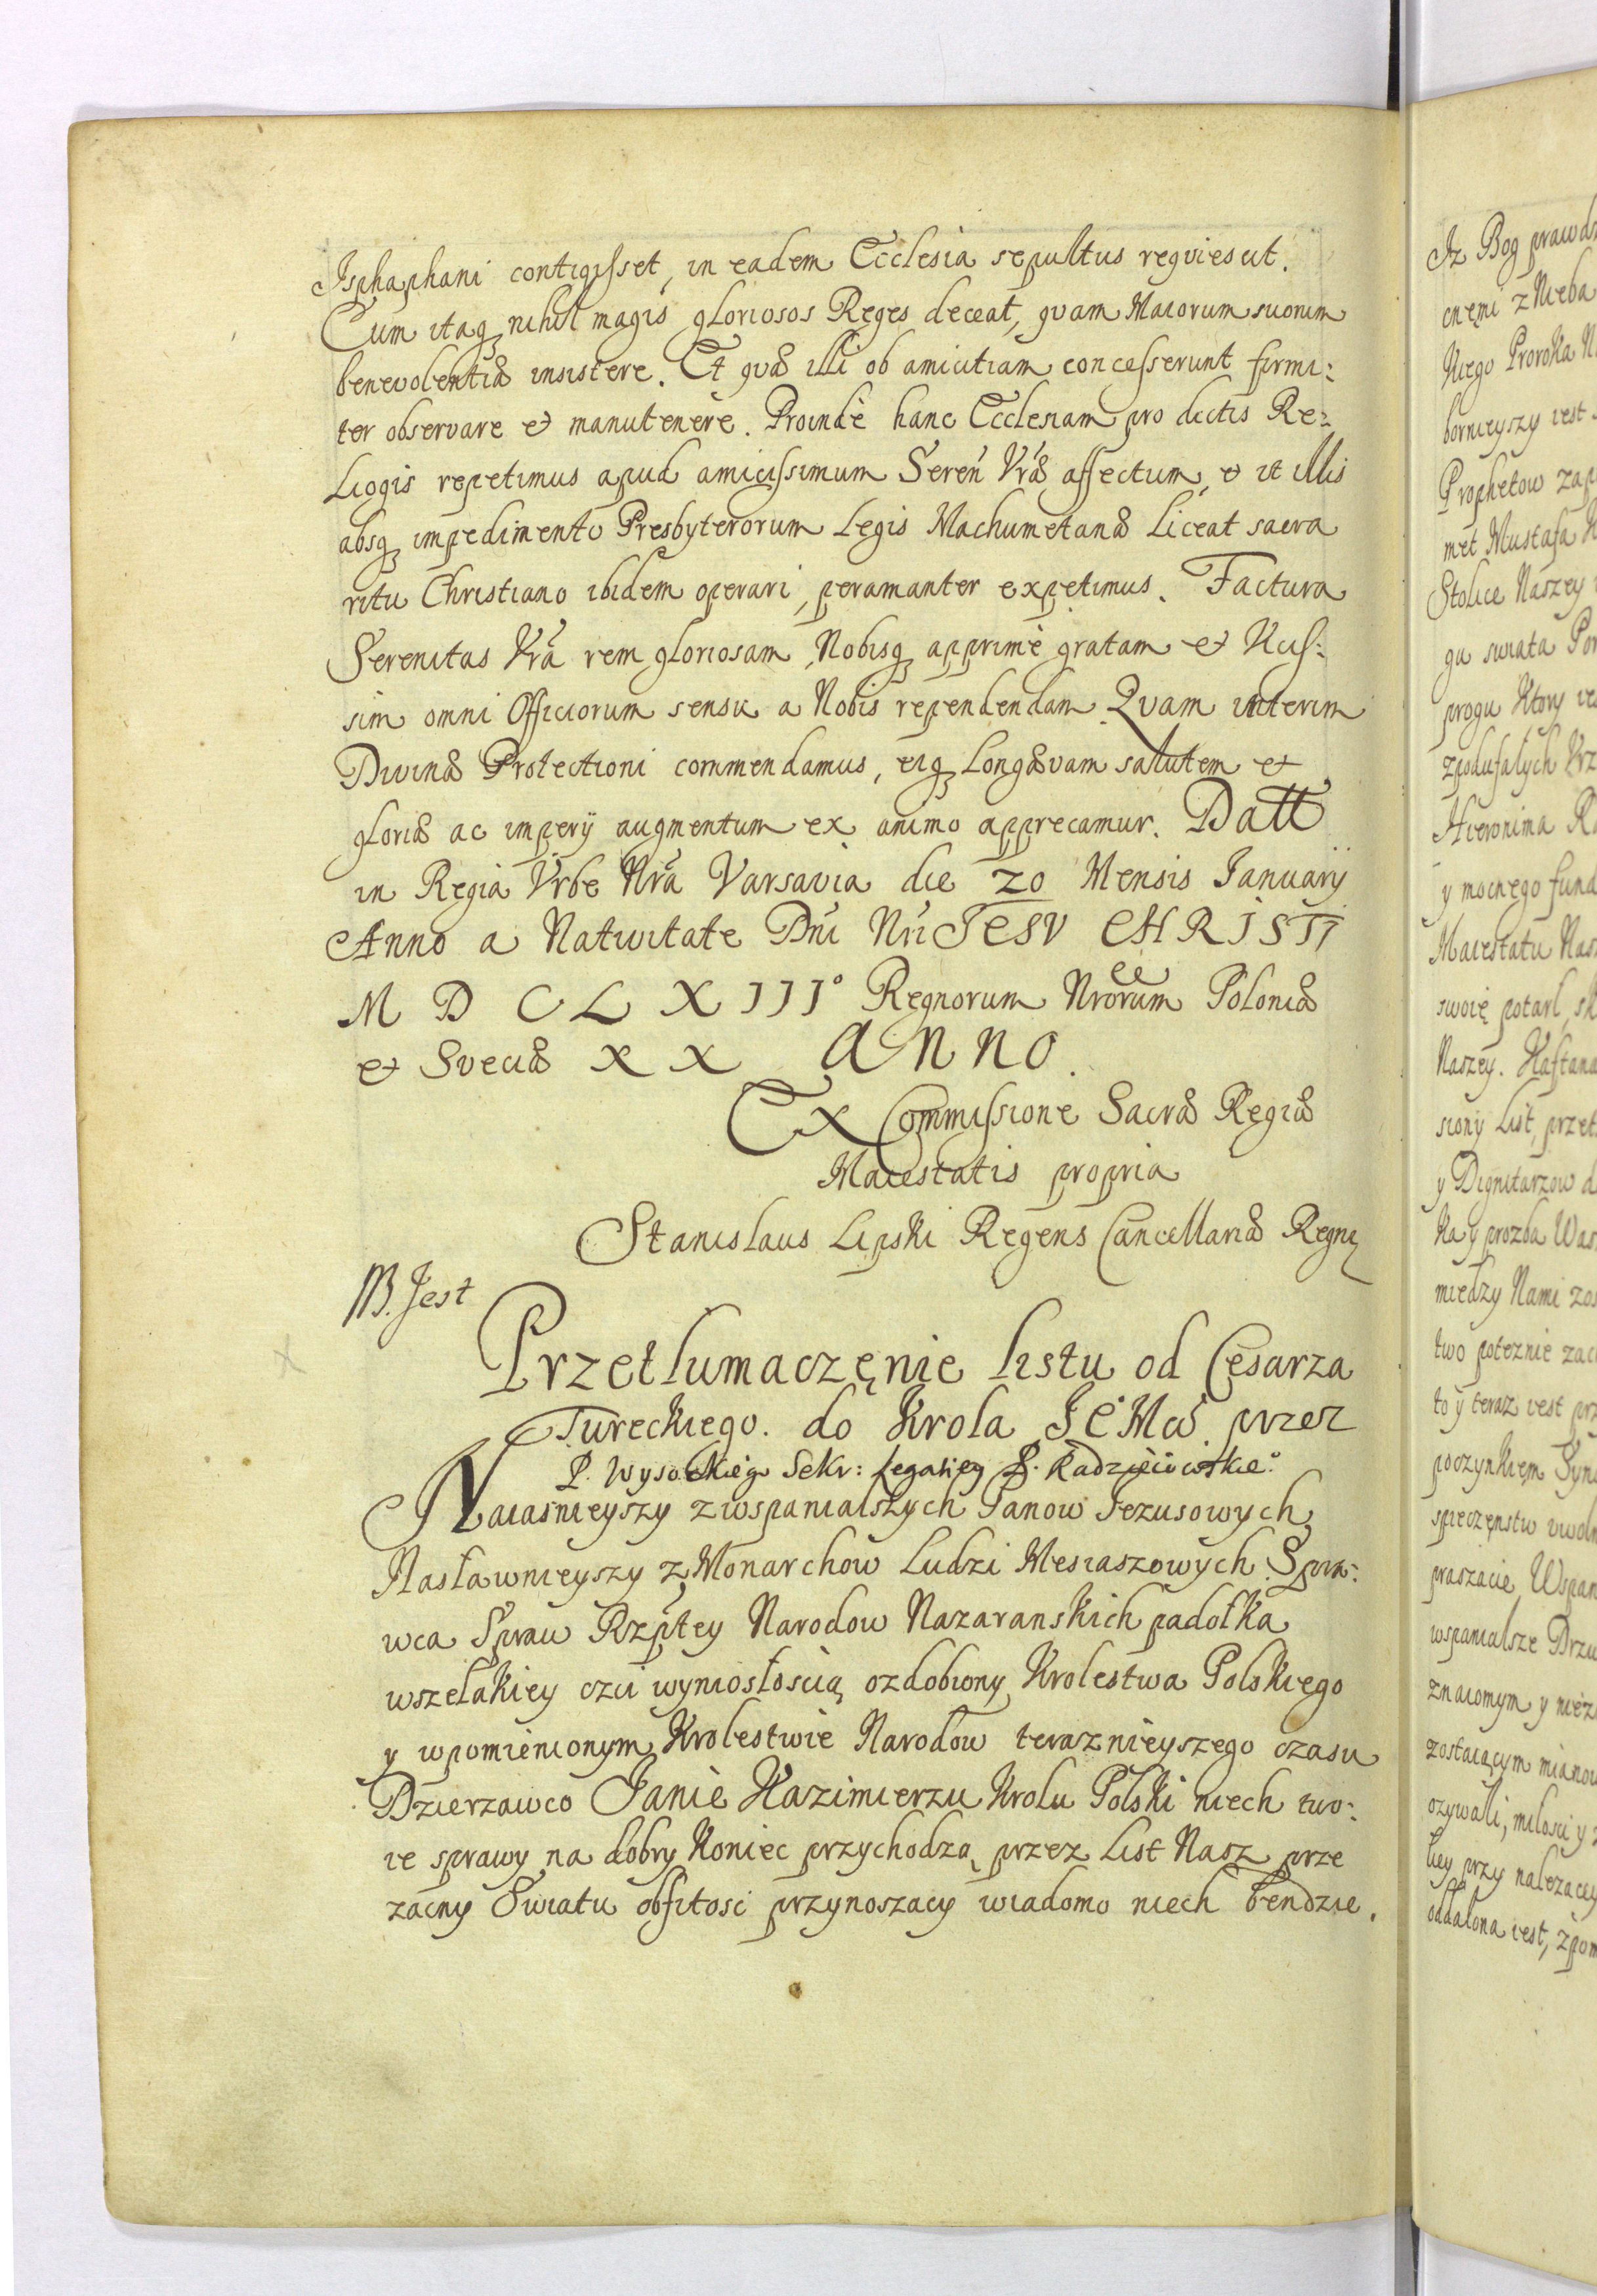 Isphaphani contigisset, in eadem Ecclesia sepultus reqviescit.
Cum itaq nihil magis gloriosos Reges deceat, qvam Maiorum suorum
benevolentiæ insistere. Et qvæ illi ob amicitiam concesserunt firmi:
ter observare et manutenere. Proinde hanc Ecclesiam pro dictis Re:
ligiosis repetimus apud amicissimum Seren Vræ affectum, et ut illis
absq impedimento Presbyterorum Legis Machumetanæ liceat sacra
ritu Christiano ibidem operari, peramanter expetimus. Factura
Serenitas Vra rem gloriosam, Nobisq apprime gratam et Vicis:
sim omni Officiorum sensu a Nobis rependendam Qvam interim
Divinæ Protectioni commendamus, eiq Longævam salutem et
gloriæ ac imperij augmentum ex animo apprecamur. Datt
in Regia Vrbe Nra Varsavia die 20 Mensis Ianuarij
Anno a Nativitate Dni Nri IESV CHRISTI
M D C L X III° Regnorum Nrorum Poloniæ
et Sveciæ XX ANNO.
Ex Commissione Sacræ Regiæ
Maiestatis propria
Stanislaus Lipski Regens Cancellariæ Regni
NB. Jest
Przetlumaczęnie listu od Cesarza
Tureckiego. do Krola JEMci przez
P. Wysockiego Sekr: Legatiey P. Radzieiowskie°
Naiasnieyszy z wspanialszych Panow Iezusowych
Nasławnieyszy z Monarchow Ludzi Mesiaszowych Spra:
wca Spraw Rzptey Narodow Nazaranskich padołka
wszelakiey czci wyniosłoscią ozdobiony Krolestwa Polskiego
y wpomienionym Krolestwie Narodow teraznieyszego czasu
Dzierzawco Ianie Kazimierzu Krolu Polski niech two:
ie sprawy na dobry koniec przychodzą przez List Nasz prze
zacny Swiatu obfitosc przynoszacy wiadomo niech bendzie.
Iz Bog prawd
cnęmi z Nieba
kiego Proroka N
bornieyszy iest
Prophetow zap
met Mustafa
Stolice Naszey
gu swiata Por
progu Ktory ie
zpodufalych Vrz
Hieronima R
y mocnego fund
Maiestatu Nas
swoię potarl, sk
Naszey. Kaftana
siony List, przet
y Dignitarzow d
ka y prozba Was
miedzy Nami zos
two poteznie zac
to y teraz iest prz
poczynkięm Syn
spieczęnstw vwoln
praszacie, Wspan
wspanialsze Drzw
znaiomym y niez
zostaiącym mianow
ozywali, milosci y
liey przy nalezacey
oddalona iest, z pom